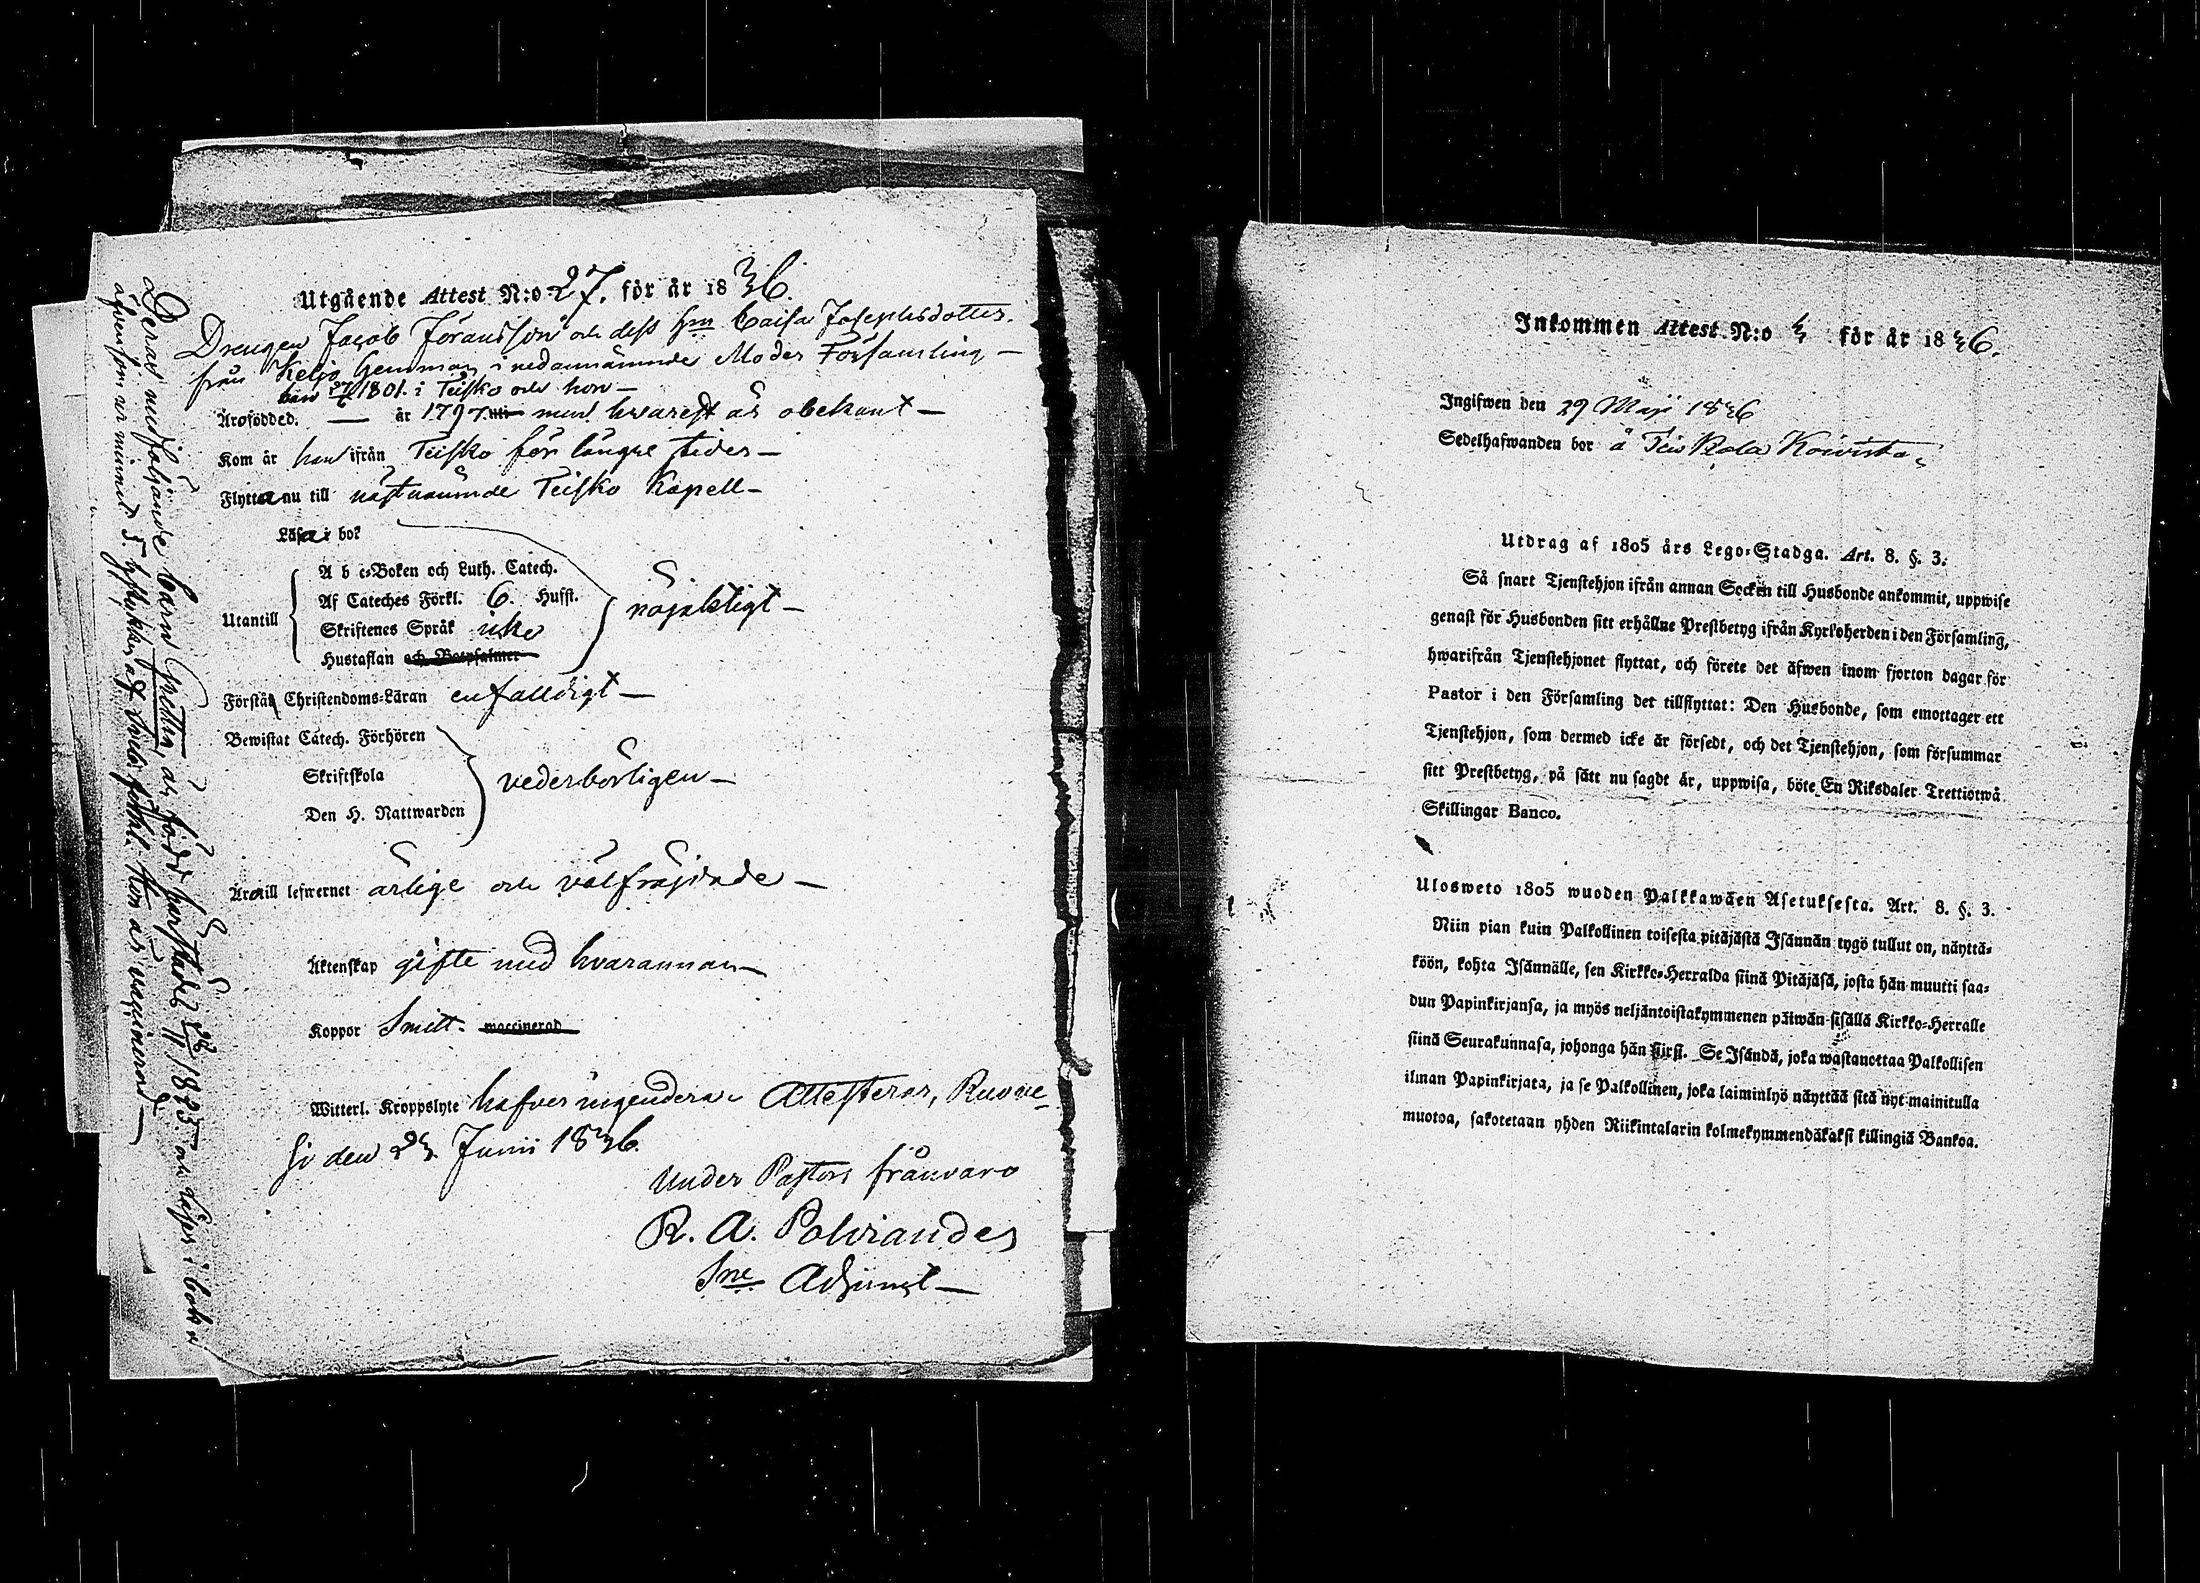 Utgående Attest N:o 27. för år 1836.
Drengen Jacob Göransson och dess Hru Caisa Josephsdotter
från Kelgo Hemman, i nedannämnde Moder Församling —
han 27/6 1801. i Teisko och hon —
Äro födde d. — år 1797. men hvarest är obekant —
Kom år han ifrån Teisko för längre tider —
Flytta nu till nästnämnde Teisko Kapell —
Läsa i bok
A b c-Boken och Luth. Catech.
Af Cateches Förkl. 6. Hufst.
Utantill Skriftenes Språk icke nöjaktigt —
Hustaflan och Botpsalmer
Förstå Christendoms-Läran enfalldigt —
Bewistat Catech. Förhören
Skriftskola vederbörligen —
Den H. Nattwarden
Äro till lefwernet ärlige och välfräjdade —
Äktenskap gifte med hvarannan —
Koppor Smitt. waccinerad
Witterl. Kroppslyte hafver ingendera. Attesterar, Ruove-
si den 23. Junii 1836.
Under Pastors frånvaro
R. A. Polviander
Sne Adjunct —
Deras medföljande barn Gretha, är född härstädes 28/11 1823. och läser i bok o
äfvensom ur minnet 5. hfstycken af förkl. Hon är vaccinerad —
Inkommen Attest N:o 3 för år 1836.
Ingifwen den 29 Maji 1836
Sedelhafwanden bor å Teiskola Koivisto
Utdrag af 1805 års Lego-Stadga. Art. 8. §. 3.
Så snart Tjenstehjon ifrån annan Socken till Husbonde ankommit, uppwise
genast för Husbonden sitt erhållne Prestbetyg ifrån Kyrkoherden i den Församling,
hwarifrån Tjenstehjonet flyttat, och förete det äfwen inom fjorton dagar för
Pastor i den Församling det tillflyttat: Den Husbonde, som emottager ett
Tjenstehjon, som dermed icke är försedt, och det Tjenstehjon, som försummar
sitt Prestbetyg, på sätt nu sagdt är, uppwisa, böte En Riksdaler Trettiotwå
Skillingar Banco.
Ulosweto 1805 wuoden Palkkawäen Asetuksesta. Art. 8. §. 3.
Niin pian kuin Palkollinen toisesta pitäjästä Isännän tygö tullut on, näyttä-
köön, kohta Isännälle, sen Kirkko-Herralda siinä Pitäjäsä, josta hän muutti saa-
dun Papinkirjansa, ja myös neljäntoistakymmenen päiwän sisällä Kirkko-Herralle
siinä Seurakunnasa, johonga hän siirsi. Se Isändä, joka wastanottaa Palkollisen
ilman Papinkirjata, ja se Palkollinen, joka laiminlyö näyttää sitä nyt mainitulla
muotoa, sakotetaan yhden Riikintalarin kolmekymmendäkaksi killingiä Bankoa.